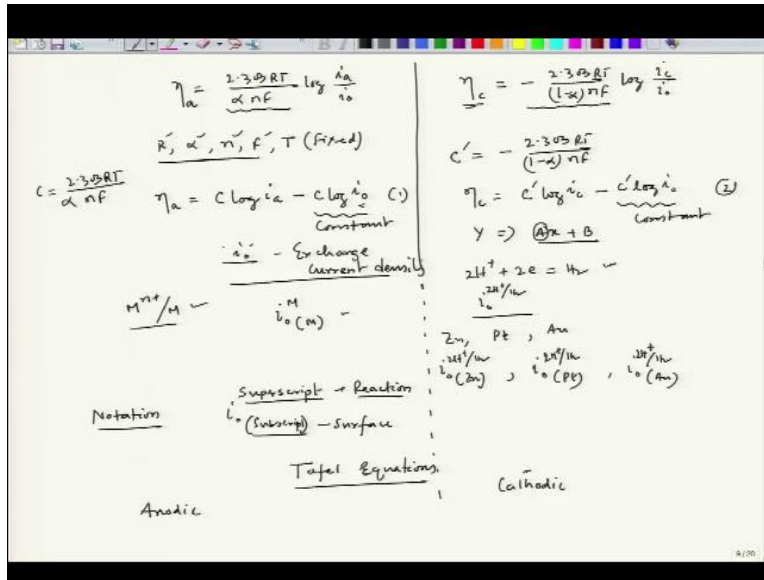 ηa = 2.303RT / αnF log ia/i0
R, α, n, F, T (Fixed)
C = 2.303RT / αnF
ηa = C log ia - C log i0 (1)
Constant
i0 - Exchange
current density
M^n+/M
i0(M)^M
Notation
Superscript → Reaction
i0
(Subscript) - Surface
Tafel Equations
Anodic
ηc = - 2.303RT / (1-α)nF log ic/i0
C' = - 2.303RT / (1-α)nF
ηc = C' log ic - C' log i0 (2)
Constant
Y ⇒ Ax + B
2H+ + 2e = H2
i0^2H+/H2
Zn, Pt, Au
i0(Zn)^2H+/H2, i0(Pt)^2H+/H2, i0(Au)^2H+/H2
Cathodic
9/20